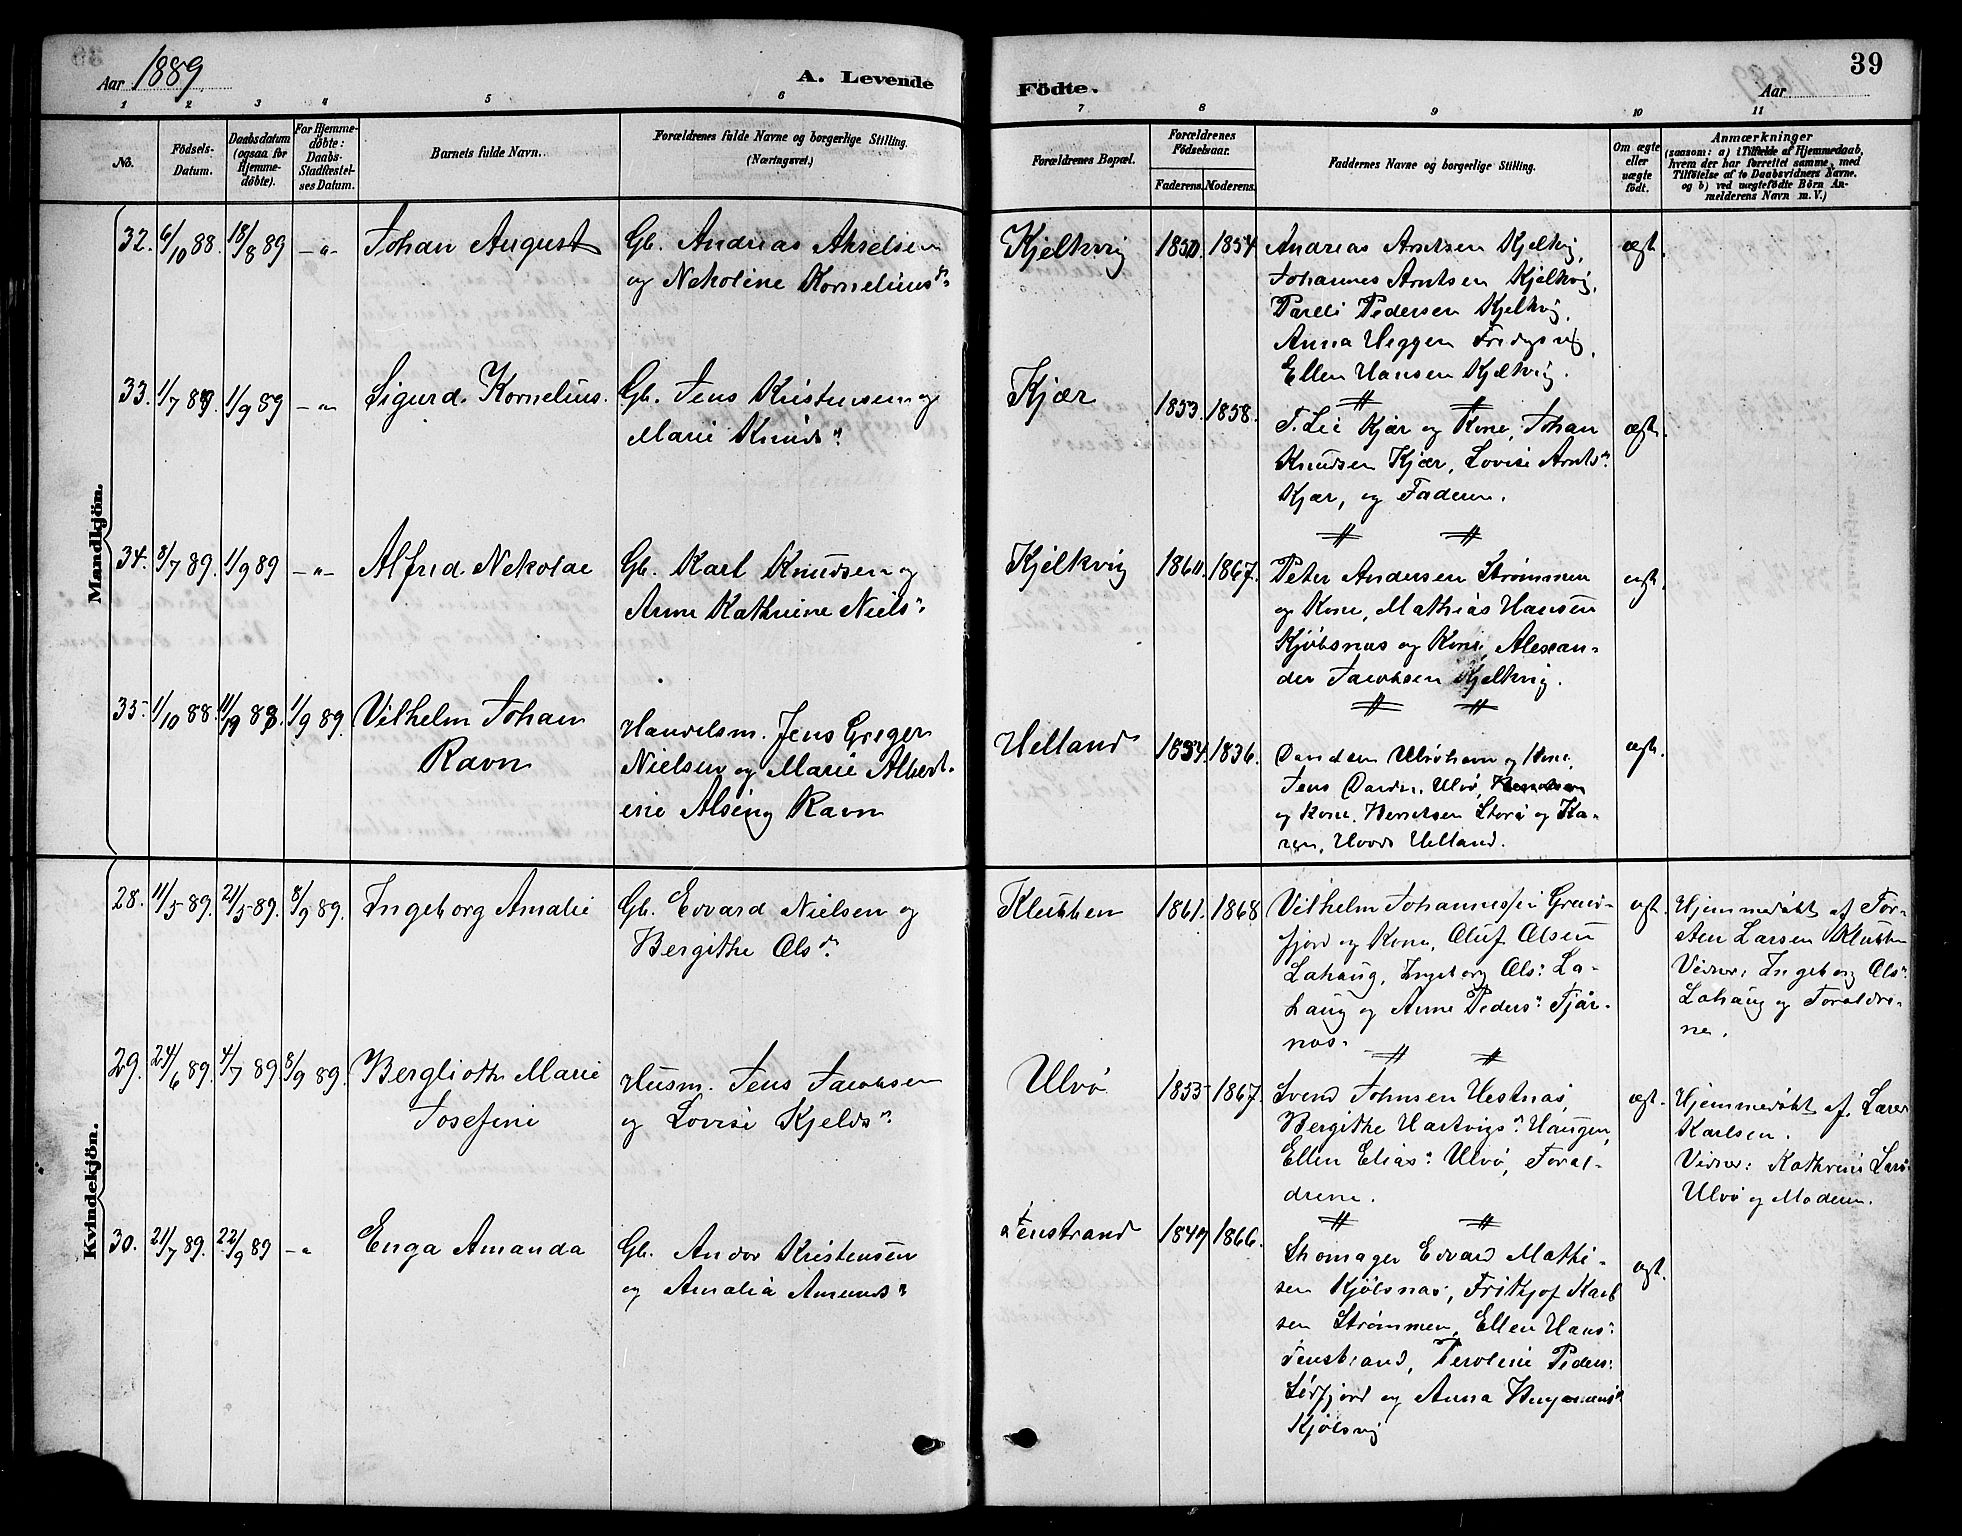 39
Aar 1889.
A. Levende
Födte.
Aar
1 2 3 4 5 6 7 8 9 10 11
No.
Födsels-
Datum.
Daabsdatum
(ogsaa for
Hjemme-
døbte).
For Hjemme-
døbte:
Daabs-
Stadfæstel-
ses Datum.
Barnets fulde Navn.
Forældrenes fulde Navne og borgerlige Stilling.
(Næringsvei.)
Forældrenes Bopæl.
Forældrenes
Födselsaar.
Faderens. Moderens.
Faddernes Navne og borgerlige Stilling.
Om ægte
eller
uægte
födt.
Anmærkninger
(saasom: a) i Tilfælde af Hjemmedaab,
hvem der har forrettet samme, med
Tilföielse af to Daabsvidners Navne.
og b) ved uægtefödte Börn An-
melderens Navn m. V.)
Mandkjön.
32. 6/10 88. 18/8 89 -"- Johan August
Gb. Andreas Akselsen
og Nekoline Kornelius dn
Kjelkvig 1850. 1854
Andreas Arntsen Kjelkvig,
Johannes Arntsen Kjelkvig,
Pareli Pedersen Kjelkvig,
Anna Heggen
Ellen Hansen Kjelkvig.
ægt.
33. 1/7 89. 1/9 89 -"- Sigurd Kornelius.
Gb. Jens Kristensen og
Marie Knuds dn
Kjær 1853. 1858.
J. Lie Kjær og Kone, Johan
Knudsen Kjær, Lovise Arnts dn
Kjær, og Faderen.
ægt.
34. 8/7 89. 1/9 89 -"- Alfred Nekolae
Gb. Karl Knudsen og
Anne Kathrine Niels dn
Kjelkvig 1860. 1867.
Peter Andersen Strømmen
og Kone, Mathias Hansen
Kjølsnæs og Kone, Alexan-
der Jacobsen Kjelkvig.
ægt.
35. 1/10 88. 88. 1/9 89. Vilhelm Johan
Ravn
Handelsm. Jens Greger
Nielsen og Marie Albert-
ine Alsing Ravn
Helland 1834. 1836.
Ulvøhavn og Kone,
Jens Ulvø,
og Kone, Storø og Ka-
ren, Helland.
ægt.
Kvindekjön.
28. 11/5 89. 21/5 89. 8/9 89. Ingeborg Amalie
Gb. Edvard Nielsen og
Bergithe Ols dn
Klubben 1861. 1868
Vilhelm Johannessen
fjord og Kone, Oluf Olsen
Lahaug, Ingeborg Ols: La-
haug og Anne Peders dn Tjær-
næs.
ægt.
Hjemmedøbt af Tor-
sten Larsen Klubben
Vidner: Ingeborg Ols dn
Lahaug og Forældre-
ne.
29. 24/6 89. 4/7 89 8/9 89. Berglioth Marie
Josefine
Husm. Jens Jacobsen
og Lovise Kjelds dn
Ulvø 1855 1867.
Svend Johnsen Hestnæs,
Bergithe Hartvigs dn Haugen,
Ellen Elias: Ulvø, Foræl-
drene.
ægt.
Hjemmedøbt af Lærer
Karlsen.
Vidner: Kathrine Lars:
Ulvø og Moderen.
30. 21/7 89. 22/9 89 -" Enga Amanda
Gb. Andor Kristensen
og Amalia Amunds dn
Finstrand 1847 1866.
Skomager Edvard Mathi-
sen Kjølsnæs, Frithjof Karl
sen Strømmen, Ellen Hans:
Finstrand, Peroline Peders:
og Anna
Kjølsvig
ægt.